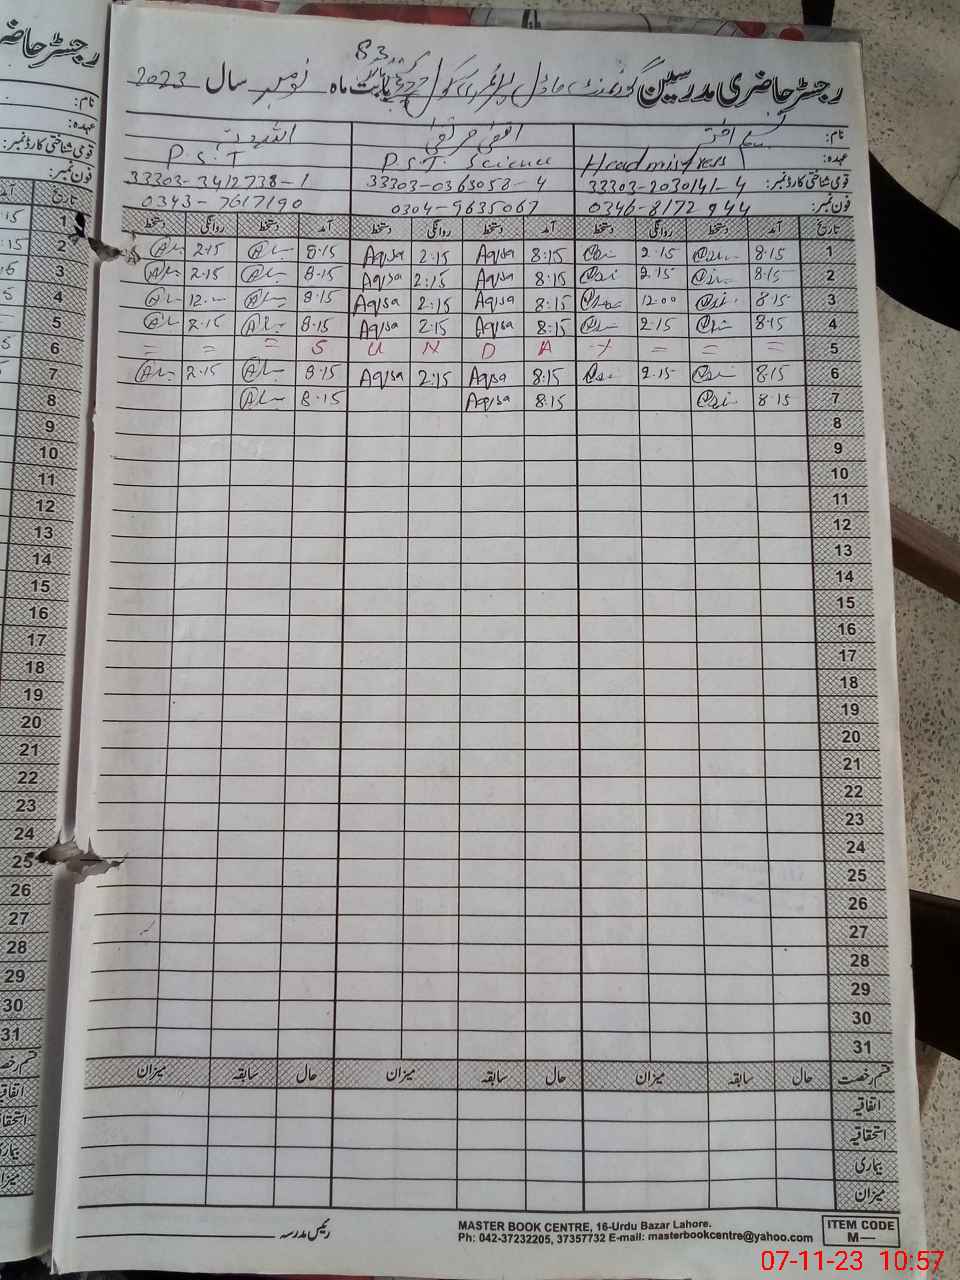 رجسٹر حاضری مدرسین گورنمنٹ ماڈل پرائمری سکول بابت ماہ نومبر سال 2023
نام:
عہدہ: Headmistress P.S.T. Science P.S.T
قومی شناختی کارڈ نمبر: 33303-2030141-4 33303-0363058-4 33303-3412738-1
فون نمبر: 0346-8172944 0304-9635067 0343-7617190
تاریخ آمد دستخط روانگی دستخط آمد دستخط روانگی دستخط آمد دستخط روانگی دستخط
1 8:15 2:15 8:15 Aqsa 2:15 Aqsa 8:15 2:15
2 8:15 2:15 8:15 Aqsa 2:15 Aqsa 8:15 2:15
3 8:15 12:00 8:15 Aqsa 2:15 Aqsa 8:15 12:00
4 8:15 2:15 8:15 Aqsa 2:15 Aqsa 8:15 2:15
5 = = = S U N D A Y = = =
6 8:15 2:15 8:15 Aqsa 2:15 Aqsa 8:15 2:15
7 8:15 8:15 Aqsa 8:15
8
9
10
11
12
13
14
15
16
17
18
19
20
21
22
23
24
25
26
27
28
29
30
31
قسم رخصت حال سابقہ میزان حال سابقہ میزان حال سابقہ میزان
اتفاقیہ
استحقاقیہ
بیماری
میزان
رئیس مدرسہ
MASTER BOOK CENTRE, 16-Urdu Bazar Lahore.
Ph: 042-37232205, 37357732 E-mail: masterbookcentre@yahoo.com
ITEM CODE
M—
رجسٹر حاضری
نام:
عہدہ:
قومی شناختی کارڈ نمبر:
فون نمبر:
تاریخ
1
2
3
4
5
6
7
8
9
10
11
12
13
14
15
16
17
18
19
20
21
22
23
24
25
26
27
28
29
30
31
07-11-23 10:57